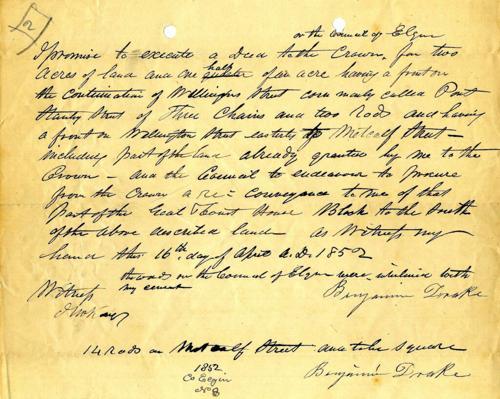 2
or the Council of Elgin
I promise to execute a Deed to the Crown, for two
acres of land and one half quarter of an acre having a front on
the continuation of Wellington Street commonly called Port
Stanly Street of Three Chains and two Rods and having
a front on Wellington Street easterly to Metcalf Street —
including part of the land already granted by me to the
Crown — and the Council to endeavour to procure
from the Crown a re-conveyance to me of that
part of the Goal & Court House Block to the South
of the above described land as Witness my
hand this 16th day of April A.D. 1852
the words or the Council of Elgin were interlined with
my consent
Witness
Benjamin Drake
14 Rods on Metcalf Street and to be square
Benjamin Drake
1852
Co Elgin
No 8